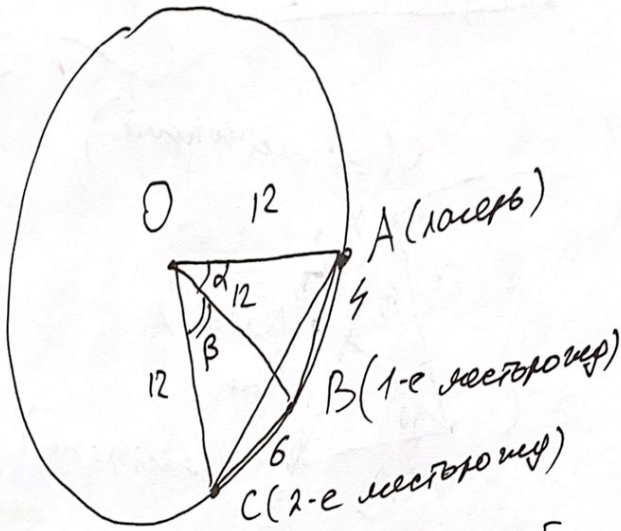 O
12
A (лагерь)
α
12
4
β
12
B (1-е месторожд)
6
C (2-е месторожд)